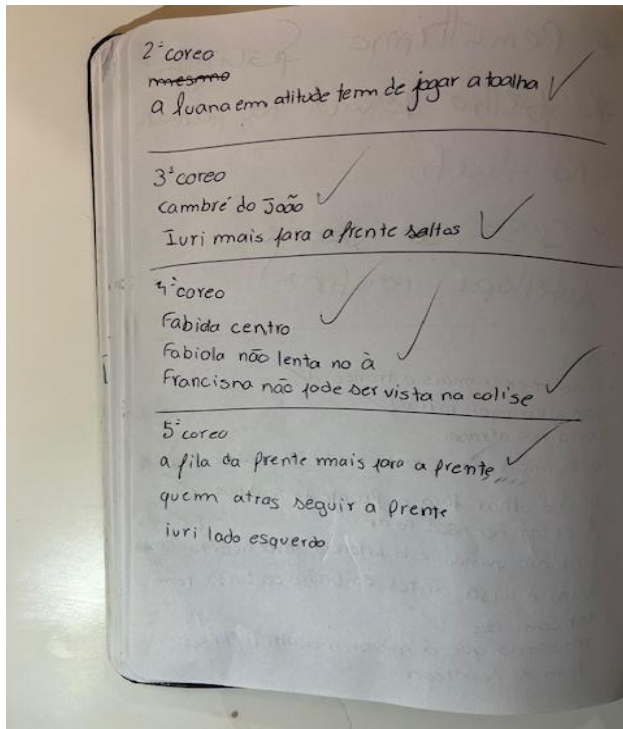 2ª coreo
mesmo
a luana em atitude tem de jogar a toalha
3ª coreo
cambré do João
Iuri mais para a frente saltos
4ª coreo
Fabida centro
Fabiola não lenta no à
Francisna não pode ser vista na colise
5ª coreo
a fila da frente mais para a frente
quem atras seguir a frente
iuri lado esquerdo